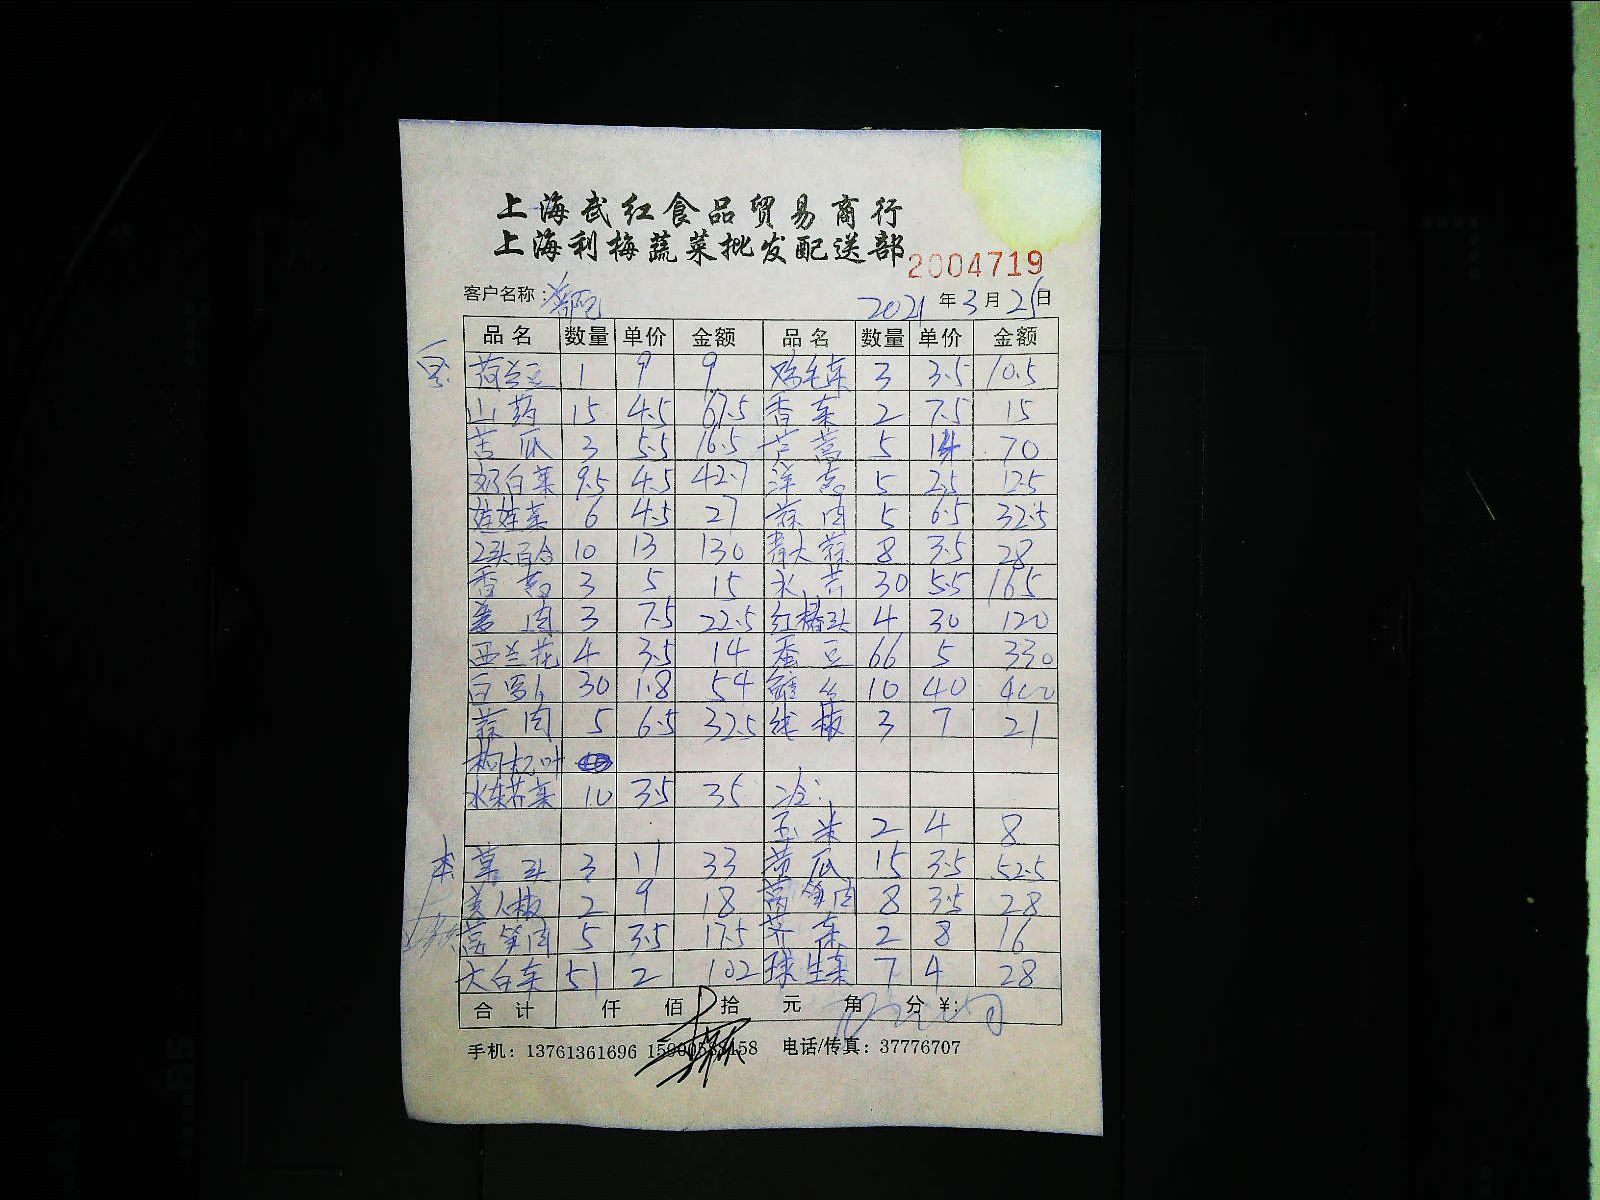 上海武红食品贸易商行
上海利梅蔬菜批发配送部
2004719
客户名称：
2021 年 3 月 25 日
品名 数量 单价 金额 品名 数量 单价 金额
荷兰豆 1 9 9 鸡毛菜 3 3.5 10.5
山药 15 4.5 67.5 香菜 2 7.5 15
苦瓜 3 5.5 16.5 芦蒿 5 14 70
奶白菜 9.5 4.5 42.7 洋葱 5 2.5 12.5
娃娃菜 6 4.5 27 蒜肉 5 6.5 32.5
2头百合 10 13 130 青大蒜 8 3.5 28
香葱 3 5 15 水芹 30 5.5 165
姜肉 3 7.5 22.5 红椿头 4 30 120
西兰花 4 3.5 14 蚕豆 66 5 330
白罗卜 30 1.8 54 10 40 400
蒜肉 5 6.5 32.5 线椒 3 7 21
枸杞叶
水东芥菜 10 3.5 35 冷:
玉米 2 4 8
草头 3 11 33 黄瓜 15 3.5 52.5
美人椒 2 9 18 莴笋肉 8 3.5 28
莴笋肉 5 3.5 17.5 芥菜 2 8 16
大白菜 51 2 102 球生菜 7 4 28
合计 仟 佰 拾 元 角 分 ¥:
手机：13761361696 电话/传真：37776707